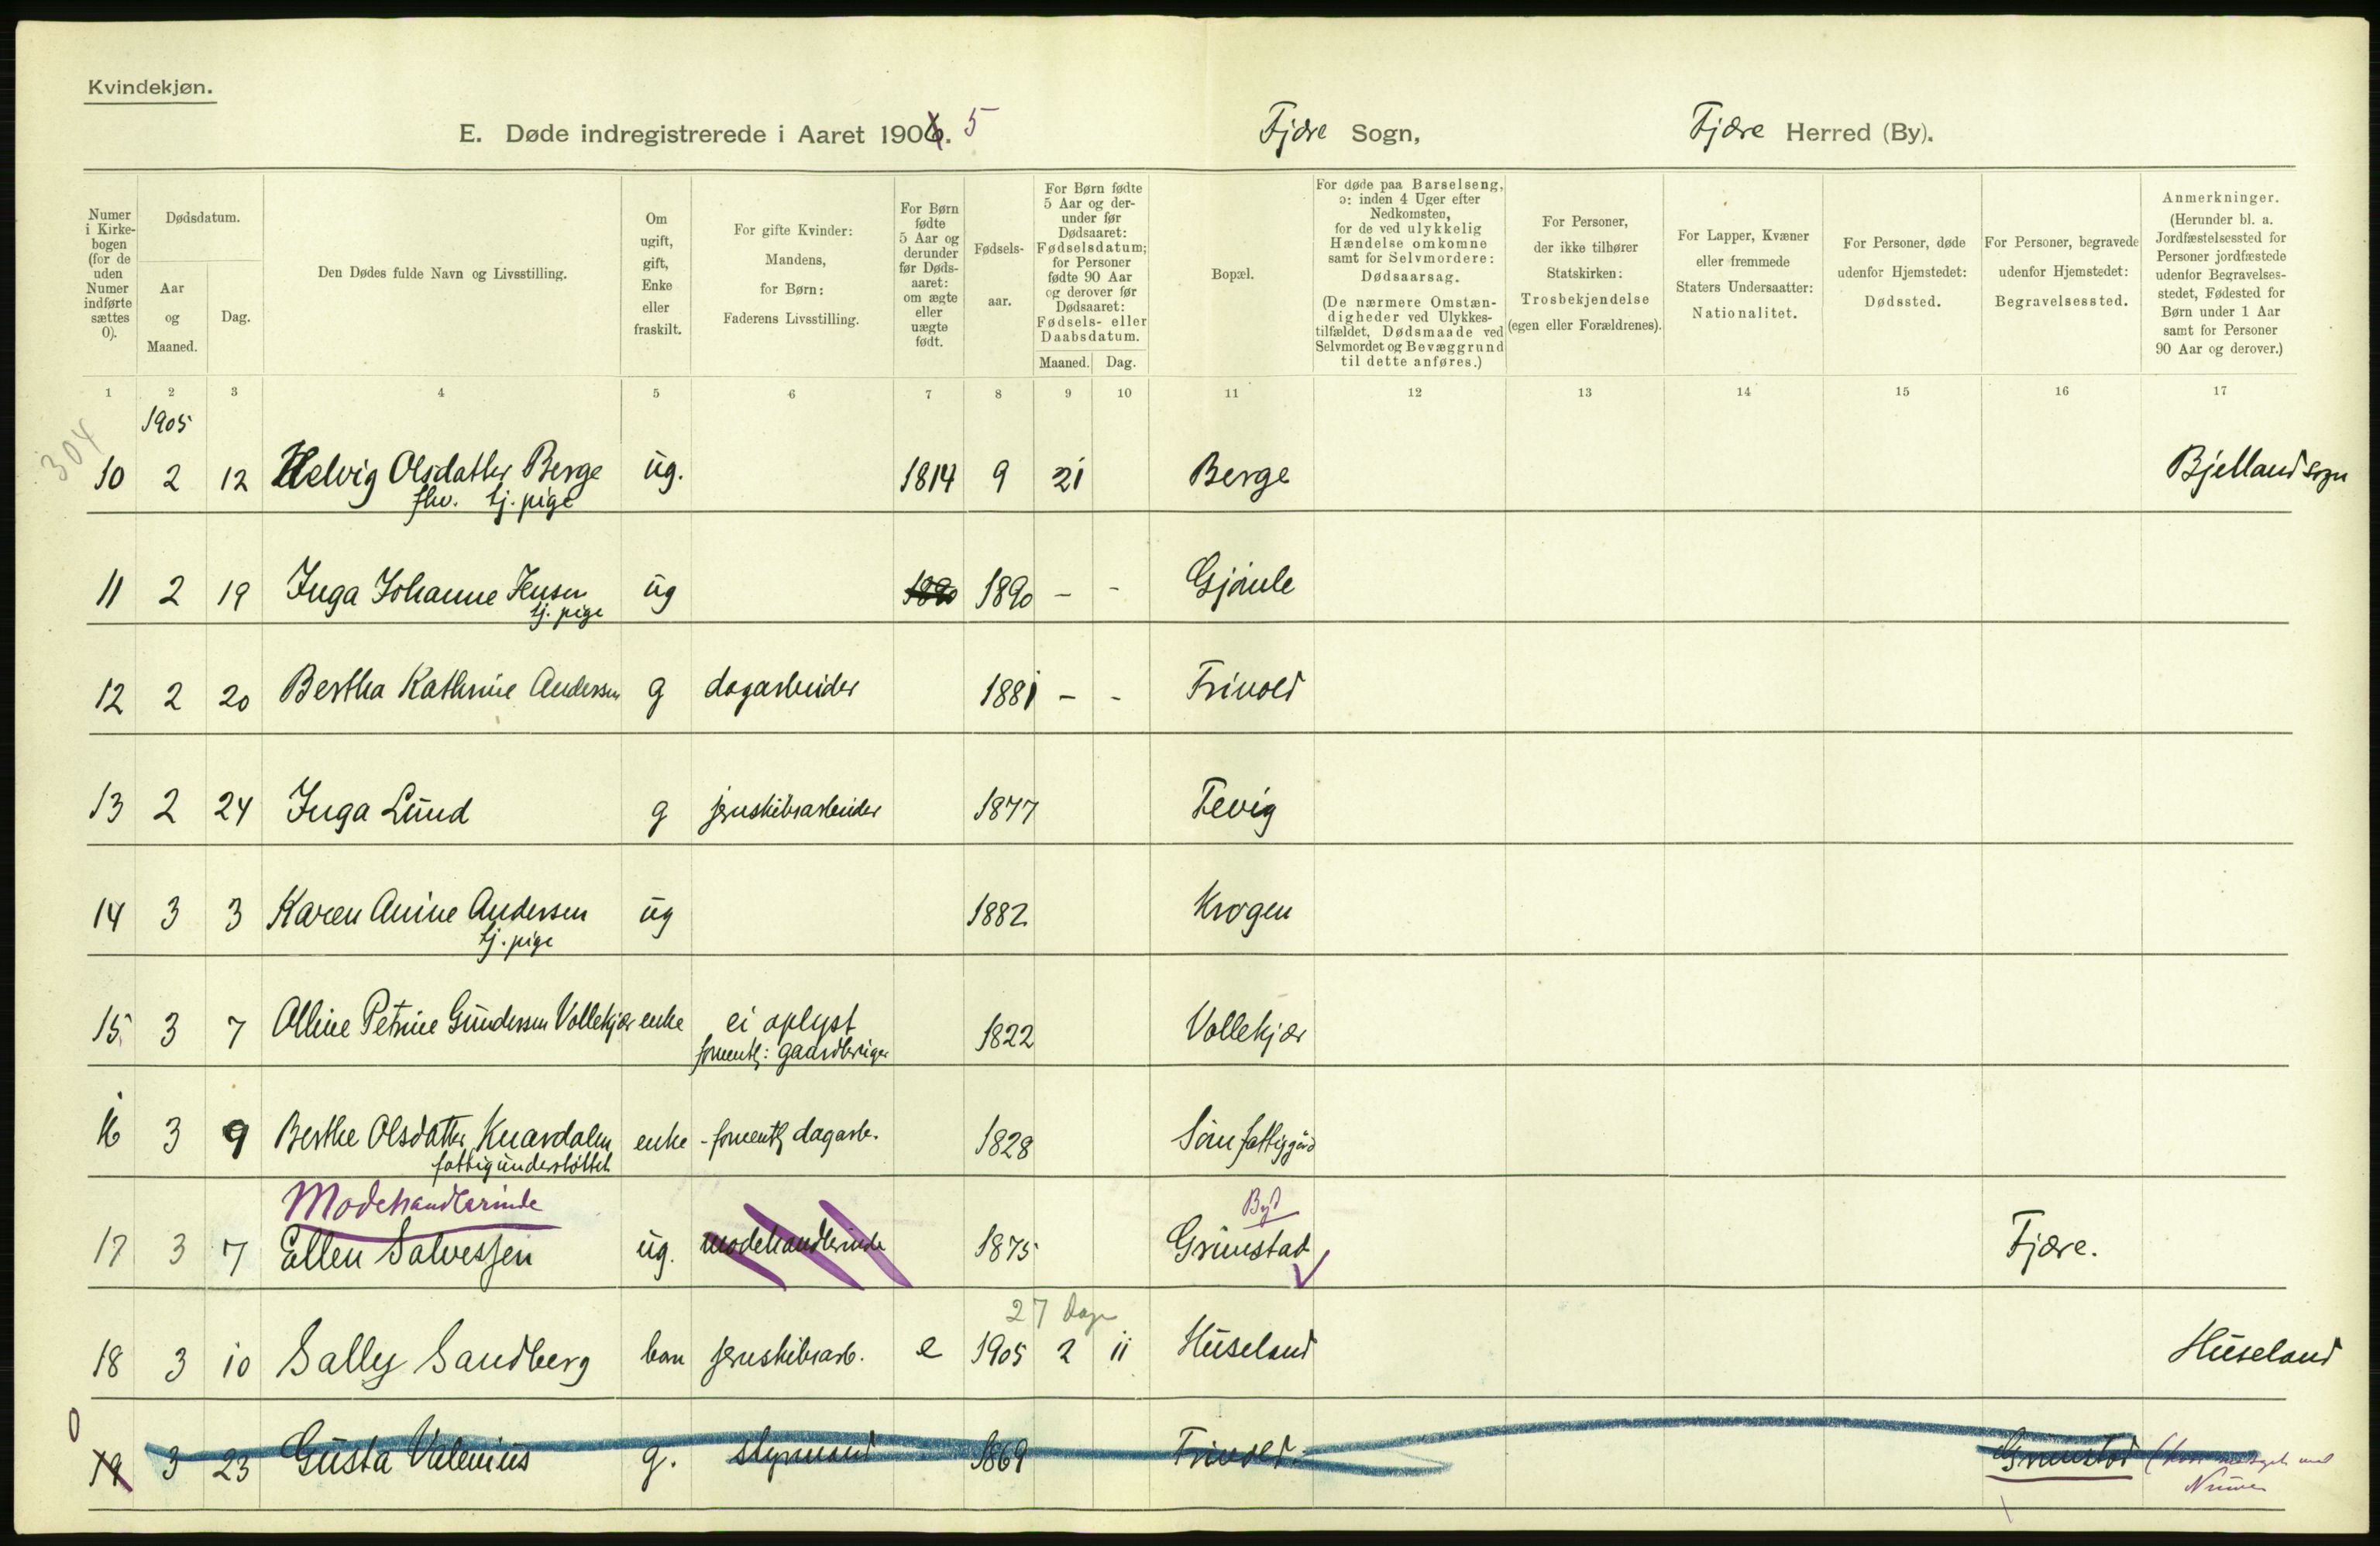 Kvindekjøn.
E. Døde indregistrerede i Aaret 1906. 5 Fjære Sogn, Fjære Herred (By).
Numer i Kirkebogen (for de uden Numer indførte sættes 0).
Dødsdatum.
Aar og Maaned.
Dag.
Den Dødes fulde Navn og Livsstilling.
Om ugift, gift, Enke eller fraskilt.
For gifte Kvinder: Mandens, for Børn: Faderens Livsstilling.
For Børn fødte 5 Aar og derunder før Dødsaaret: om ægte eller uægte født.
Fødselsaar.
For Børn fødte 5 Aar og derunder før Dødsaaret: Fødselsdatum; for Personer fødte 90 Aar og derover før Dødsaaret: Fødsels- eller Daabsdatum.
Maaned. Dag.
Bopæl.
For døde paa Barselseng, ɔ: inden 4 Uger efter Nedkomsten, for de ved ulykkelig Hændelse omkomne samt for Selvmordere: Dødsaarsag.
(De nærmere Omstændigheder ved Ulykkestilfældet, Dødsmaade ved Selvmordet og Bevæggrund til dette anføres.)
For Personer, der ikke tilhører Statskirken: Trosbekjendelse (egen eller Forældrenes).
For Lapper, Kvæner eller fremmede Staters Undersaatter: Nationalitet.
For Personer, døde udenfor Hjemstedet: Dødssted.
For Personer, begravede udenfor Hjemstedet: Begravelsessted.
Anmerkninger.
(Herunder bl. a. Jordfæstelsessted for Personer jordfæstede udenfor Begravelsesstedet, Fødested for Børn under 1 Aar samt for Personer 90 Aar og derover.)
1 2 3 4 5 6 7 8 9 10 11 12 13 14 15 16 17
304
1905
10 2 12 Helvig Olsdatter Berge ug. 1814 9 21 Berge Bjelland sogn
fhv. tj. pige
11 2 19 Inga Johanne Jensen ug 1890 1890 - - Gjömle
tj. pige
12 2 20 Bertha Kathrine Andersen g dagarbeider 1881 - - Frivold
13 2 24 Inga Lund g jernskibsarbeider 1877 Fevig
14 3 3 Karen Anine Andersen ug 1882 Krogen
tj. pige
15 3 7 Olline Petrine Gundersen Vollekjær enke ei oplyst 1822 Vollekjær
formentl: gaardbruger
16 3 9 Berthe Olsdatter Knardalen enke - formentl dagarb. 1828 Söm fattiggård
fattigunderstöttet
Modehandlerinde
Byd
17 3 7 Ellen Salvessen ug. modehandlerinde 1875 Grimstad Fjære.
27 Dage
18 3 10 Sally Sandberg barn jernskibsarb. e 1905 2 11 Huseland Huseland
0
19 3 23 Gusta Valenius g. styrmand 1869 Frivold. Grimstad